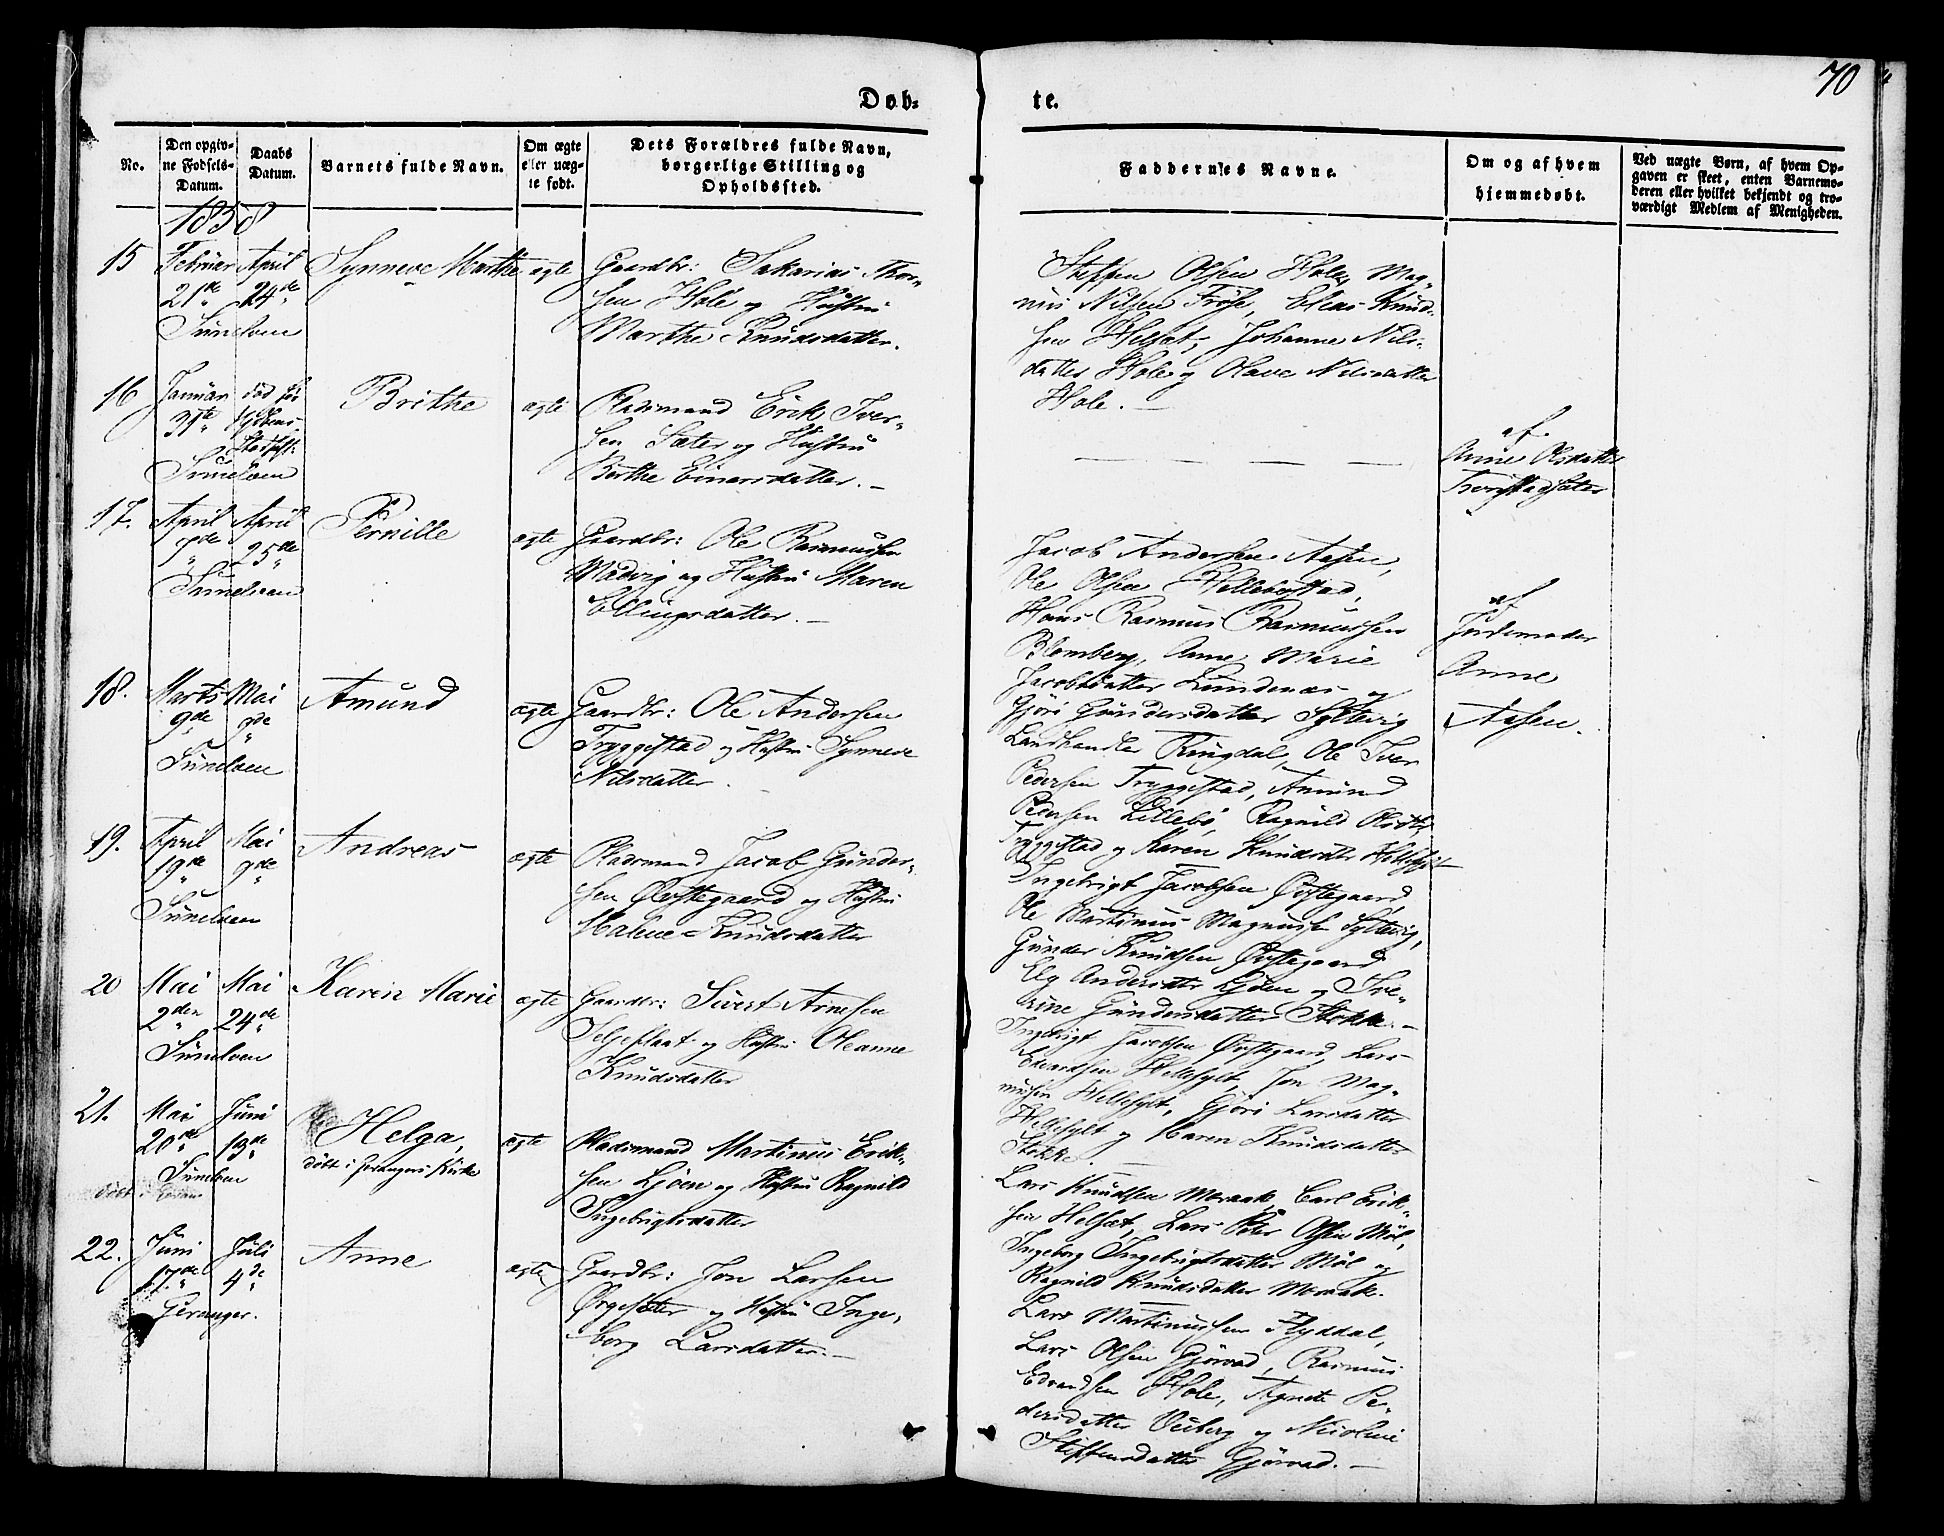 70
Døb-
te.
No.
Den opgiv-
ne Fødsels-
Datum.
Daabs
Datum.
Barnets fulde Navn.
Om ægte
eller uæg-
te født.
Dets Forældres fulde Navn,
borgerlige Stilling og
Opholdssted.
Faddernes Navne.
Om og af hvem
hjemmedøbt.
Ved uægte Børn, af hvem Op-
gaven er skeet, enten Barnemo-
deren eller hvilket bekjendt og tro-
værdigt Medlem af Menigheden.
1858
15
Februar
21de
Sunelven
April
24de
Synneve Marthe
ægte
Gaardbr: Sakarias Thor-
sen Hole og Hustru
Marthe Knudsdatter.
Steffen Olsen Hole, Mag-
nus Nilsen Frøse, Elias Knud-
sen Helset, Johanne Nils-
datter Hole og Olave Nilsdatter
Hole.
16
Januar
31te
Sunelven
død før
Brithe
ægte
Pladsmand Erik Iver-
sen Sæter og Hustru
Berthe Einarsdatter.
af
Anne Olsdatter
17.
April
7de
Sunelven
April
25de
Pernille
ægte
Gaardbr: Ole Rasmussen
Madvig og Hustru Maren
Ellingsdatter.
Jacob Andersen Aasen,
Ole Olsen Hellebostad,
Hans Rasmus Rasmussen
Blomberg, Anne Marie
Jacobsdatter Lundenæs og
Gjøri Gundersdatter Syltevig
af
Jordemoder
Anne
Aasen.
18.
Marts
9de
Sunelven
Mai
9de
Amund
ægte
Gaardbr: Ole Andersen
Tryggestad og Hustru Synneve
Nilsdatter.
Landhandler Ringdal, Ole Iver
Pedersen Tryggestad, Amund
Pedersen Lillebø, Ragnild Olsdtr
Tryggestad og Karen Knudsdatter Hellesylt
19.
April
19de
Sunelven
Mai
9de
Andreas
ægte
Pladsmand Jacob Gunder-
sen Øvstegaard og Hustru
Malene Knudsdatter
Ingebrigt Jacobsen Øvstegaard,
Ole Martinus Magnusen Syltevig,
Gunder Knudsen Øvstegaard
Elg Andersdatter Ljøen og Sve-
rine Gundersdatter Stokke.
20
Mai
2den
Sunelven
Mai
24de
Karen Marie
ægte
Gaardbr: Sivert Arnesen
Seljeflaat og Hustru Oleanne
Knudsdatter
Ingebrigt Jacobsen Øvstegaard, Lars
Edvardsen Hellesylt, Jon Mag-
nusen Hellesylt, Gjøri Larsdatter
Hellesylt og Maren Knudsdatter
Stokke.
21.
Mai
20de
Sunelven
Juni
13de
Helga,
døbt i Gerangers Kirke
ægte
Pladsmand Martinus Erik-
sen Ljøen og Hustru Ragnild
Ingebrigtsdatter
Lars Knudsen Meraak, Carl Erik-
sen Helset, Lars Peter Olsen Møl,
Ingeborg Ingebrigtsdatter Møl og
Ragnild Knudsdatter Meraak.
22.
Juni
17de
Geranger.
Juli
4de
Anne
ægte
Gaardbr: Jon Larsen
Ørgesæter og Hustru Inge-
borg Larsdatter.
Lars Martinussen Flyddal,
Lars Olsen Gjørvad, Rasmus
Edvardsen Hole, Agnete Pe-
dersdatter Ouberg og Nicoline
Steffensdatter Gjørvad.